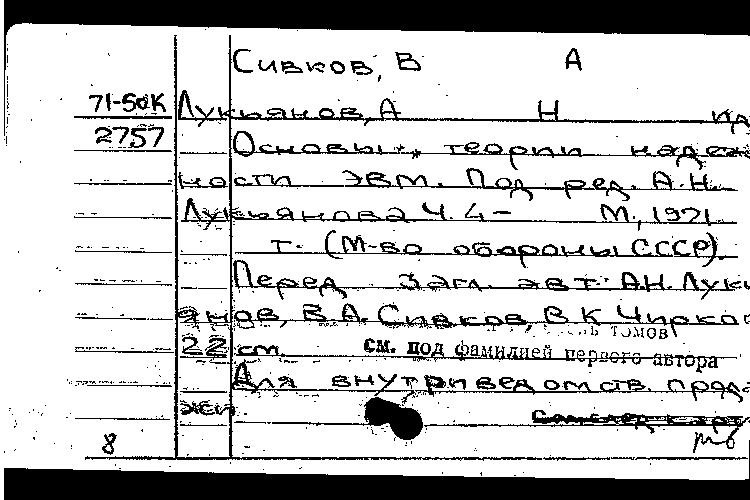 Сивков, В А
71-50К Лукьянов, А Н ид
2757 Основы теории надеж
ности ЭВМ. Под ред. А.Н.
Лукьянова Ч. 4- М., 1971
т. (М-во обороны СССР).
Перед загл. авт: А.Н. Лукь
янов, В.А. Сивков, В К Чирков
томов
22 см. см. под фамилией первого автора
Для внутриведомств. прода
жи
8